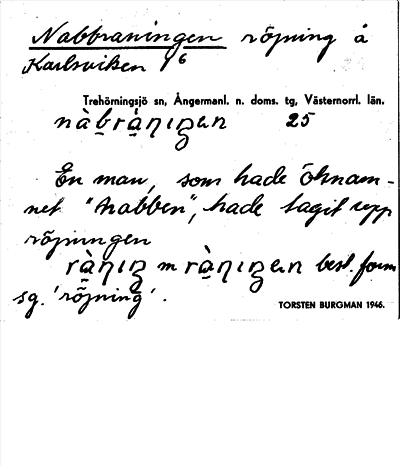 Nabbraningen röjning å
Karlsviken 1/6
Trehörningsjö sn, Ångermanl. n. doms. tg, Västernorrl. län.
25
En man, som hade öknam-
net "Nabben", hade tagit upp
röjningen
m best. form
sg. 'röjning'.
TORSTEN BURGMAN 1946.